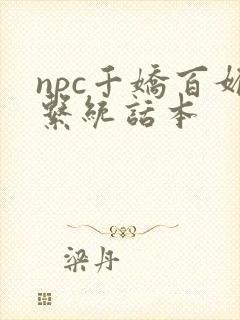 npc千嬌百媚
繫統話本
梁丹